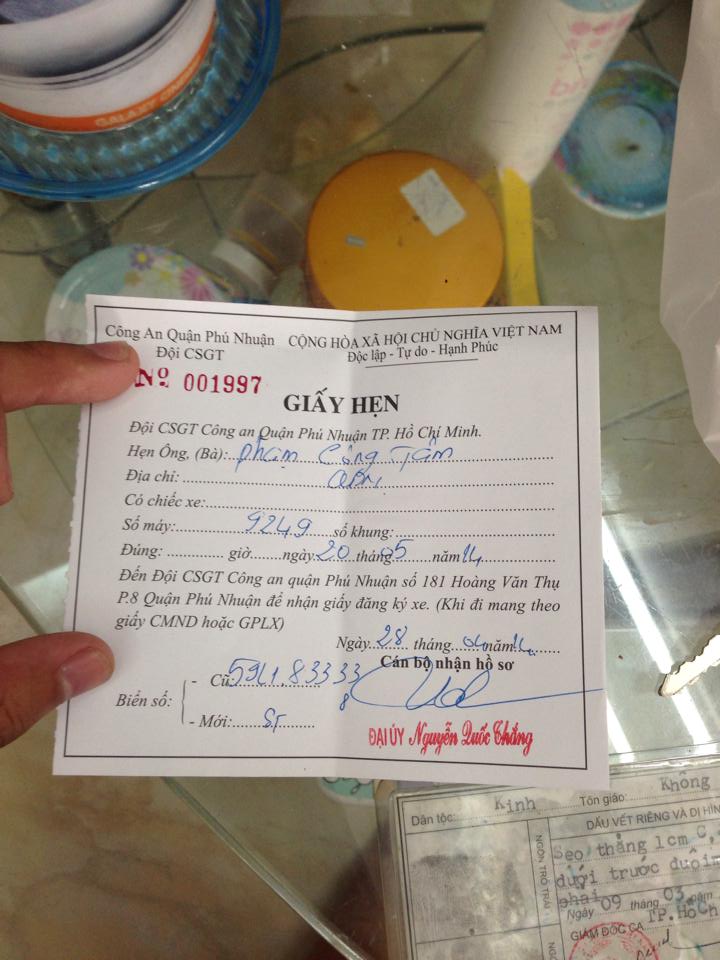 GALAXY CINEMA
Công An Quận Phú Nhuận CỘNG HÒA XÃ HỘI CHỦ NGHĨA VIỆT NAM
Đội CSGT Độc lập - Tự do - Hạnh Phúc
Nº 001997
GIẤY HẸN
Đội CSGT Công an Quận Phú Nhuận TP. Hồ Chí Minh.
Hẹn Ông, (Bà): Phạm Công Tâm
Địa chỉ:
Có chiếc xe:
Số máy: 9249 số khung:
Đúng: giờ ngày 20 tháng 05 năm 14
Đến Đội CSGT Công an quận Phú Nhuận số 181 Hoàng Văn Thụ
P.8 Quận Phú Nhuận để nhận giấy đăng ký xe. (Khi đi mang theo
giấy CMND hoặc GPLX)
Ngày 28 tháng 04 năm 14
Cán bộ nhận hồ sơ
Biển số: - Cũ:
- Mới:
ĐẠI ÚY Nguyễn Quốc Thắng
Dân tộc: Kinh Tôn giáo: Không
NGÓN TRỎ TRÁI
DẤU VẾT RIÊNG VÀ DỊ HÌN
Sẹo thẳng 1cm C,
dưới trước đuôi
phải
Ngày 09 tháng 03 năm
GIÁM ĐỐC CA TP.Hồ Ch
NGÓN